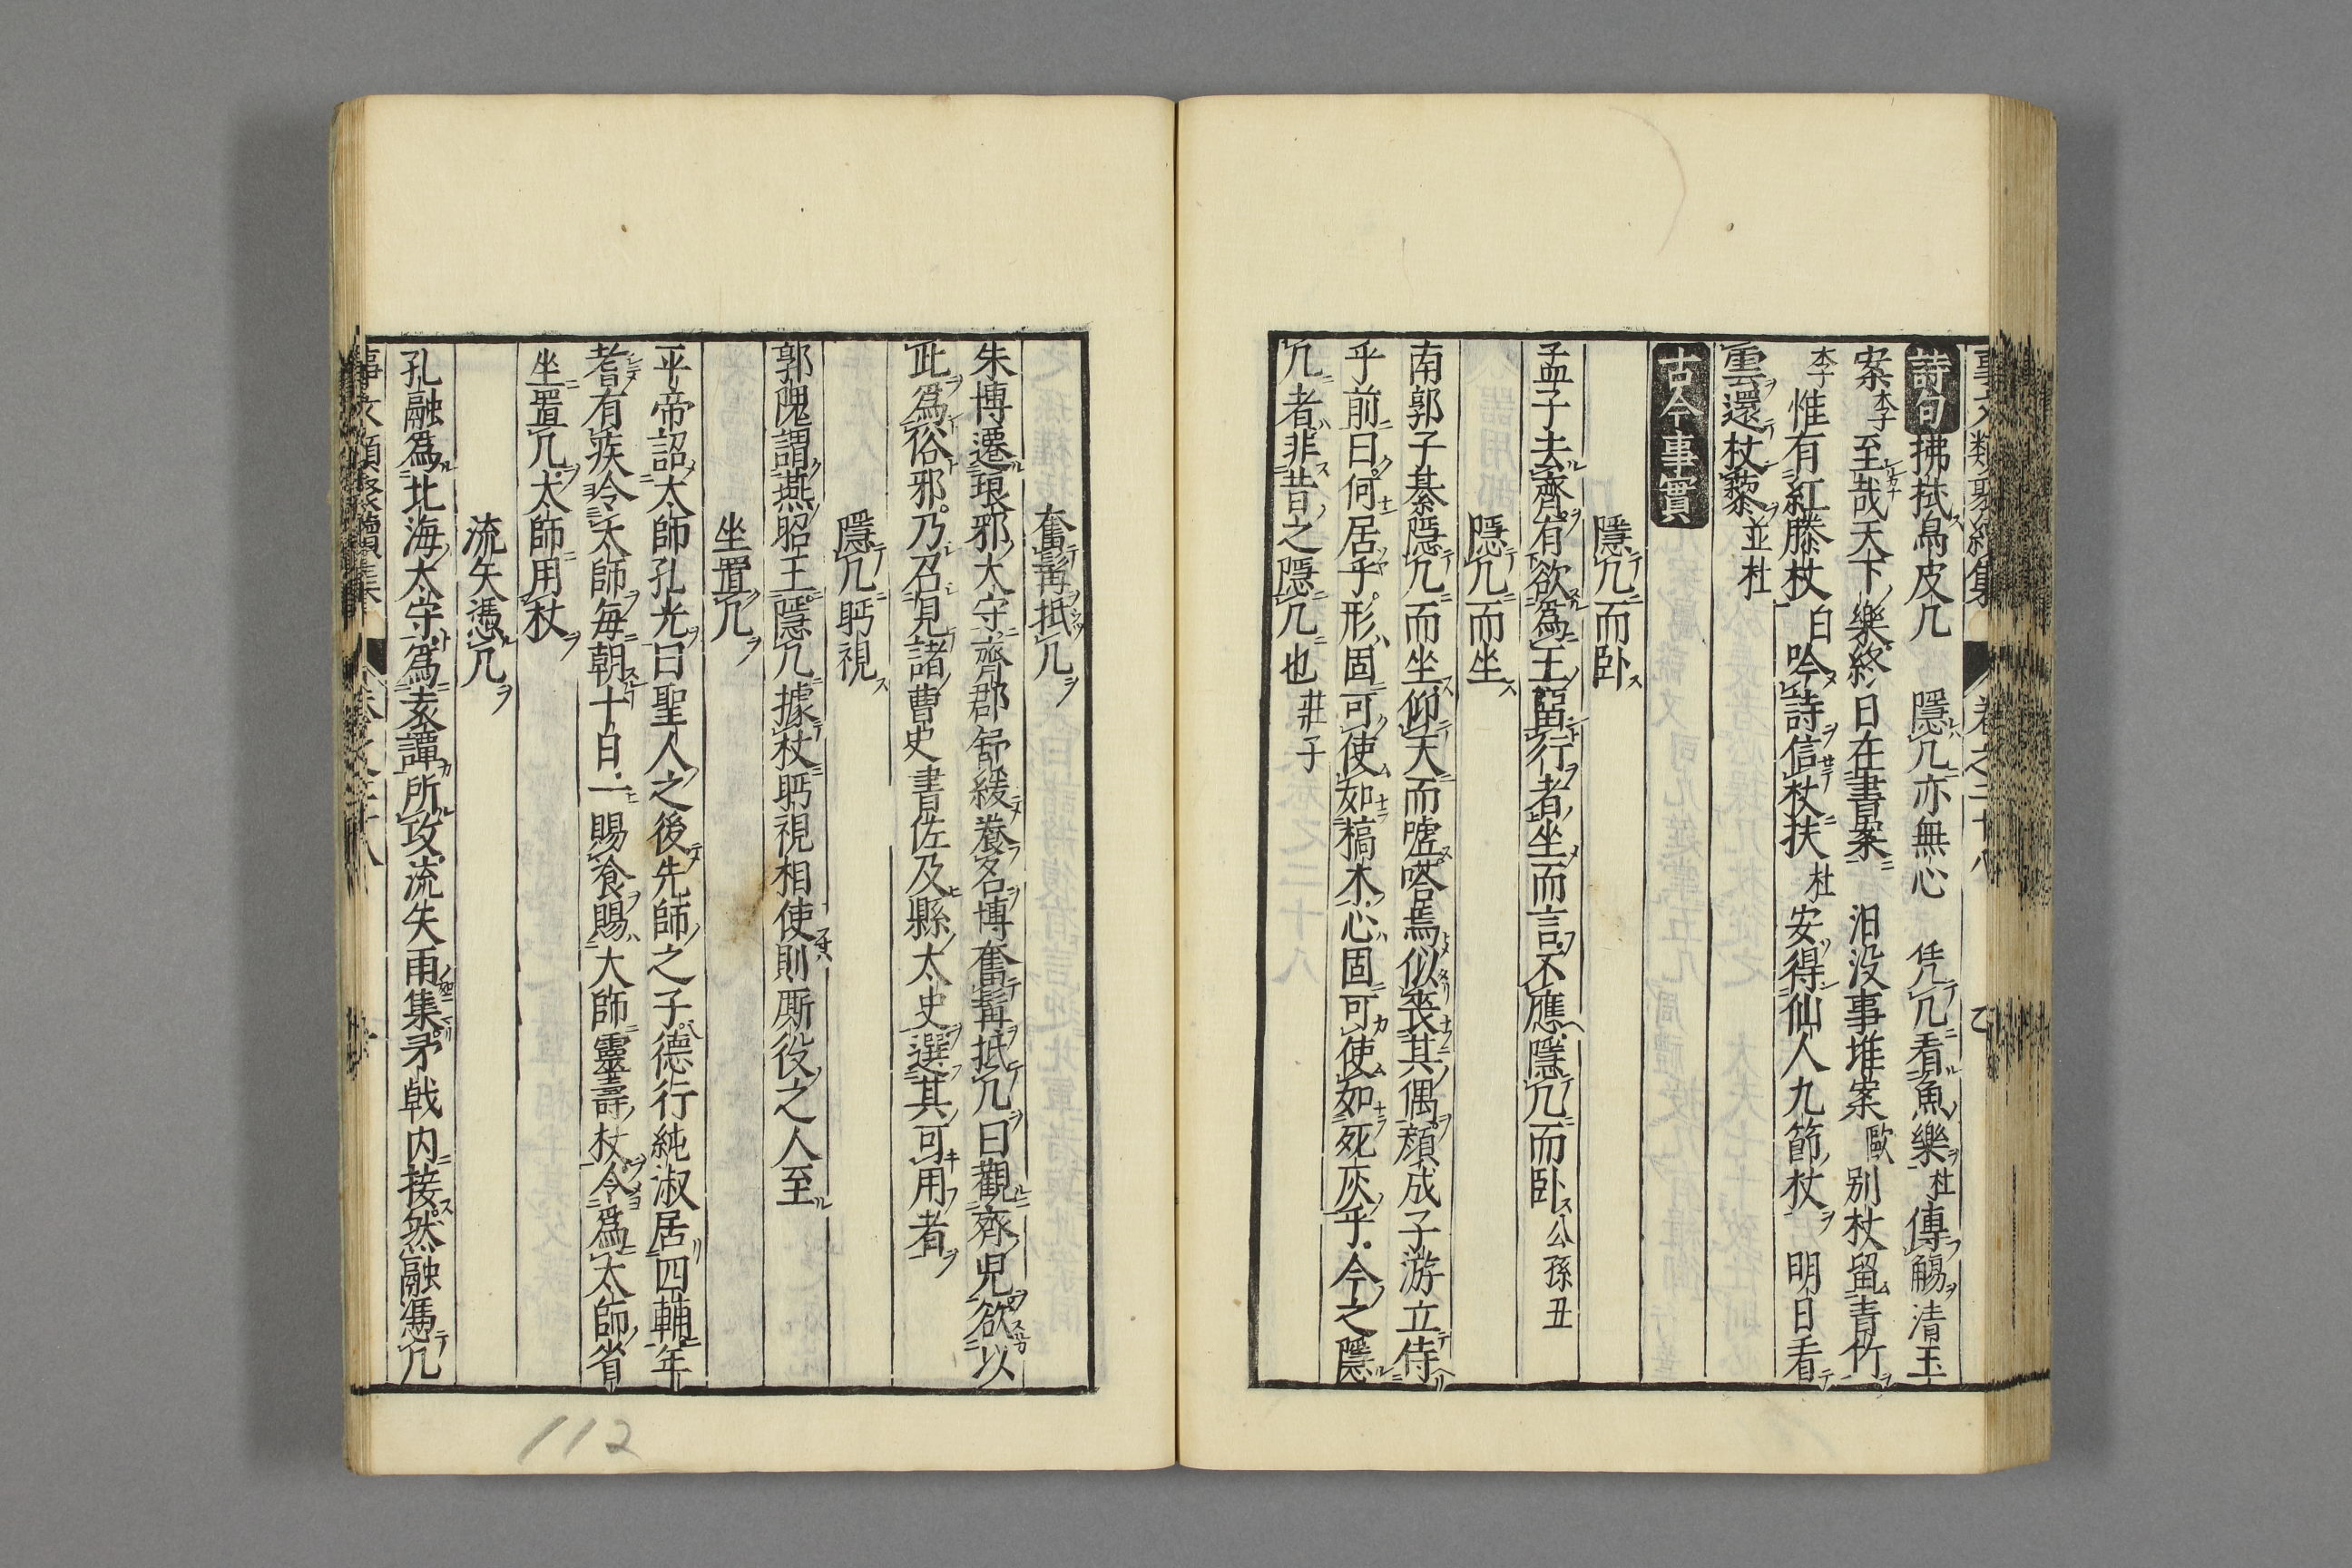 事文類聚續集 卷之二十八
詩句 拂拭烏皮几 隱几亦無心 凭几看魚樂杜 傳觴清玉
案李 至哉天下樂終日在書案 汨没事堆案歐 别杖留青竹
李 惟有紅藤杖白 吟詩信杖扶杜 安得仙人九節杖 明日看
雲還杖藜並杜
古今事實
隱几而卧
孟子去齊有欲爲王留行者坐而言不應隱几而卧公孫丑
隱几而坐
南郭子綦隱几而坐仰天而嘘嗒焉似喪其偶顔成子游立侍
乎前曰何居乎形固可使如槁木心固可使如死灰乎今之隱
几者非昔之隱几也莊子
奮髯抵几
朱博遷琅邪太守齊郡舒緩養名博奮髯抵几曰觀齊兒欲以
此爲俗邪乃召見諸曹史書佐及縣太史選其可用者
隱几眄視
郭隗謂燕昭王隱几據杖眄視相使則厮役之人至
坐置几
平帝詔太師孔光曰聖人之後先師之子德行純淑居四輔年
耆有疾令太師毎朝十日一賜食賜太師靈壽杖令爲太師省
坐置几太師用杖
流矢憑几
孔融爲北海太守爲袁譚所攻流矢雨集矛戟内接然融馮几
事文類聚續集 卷之二十八
112